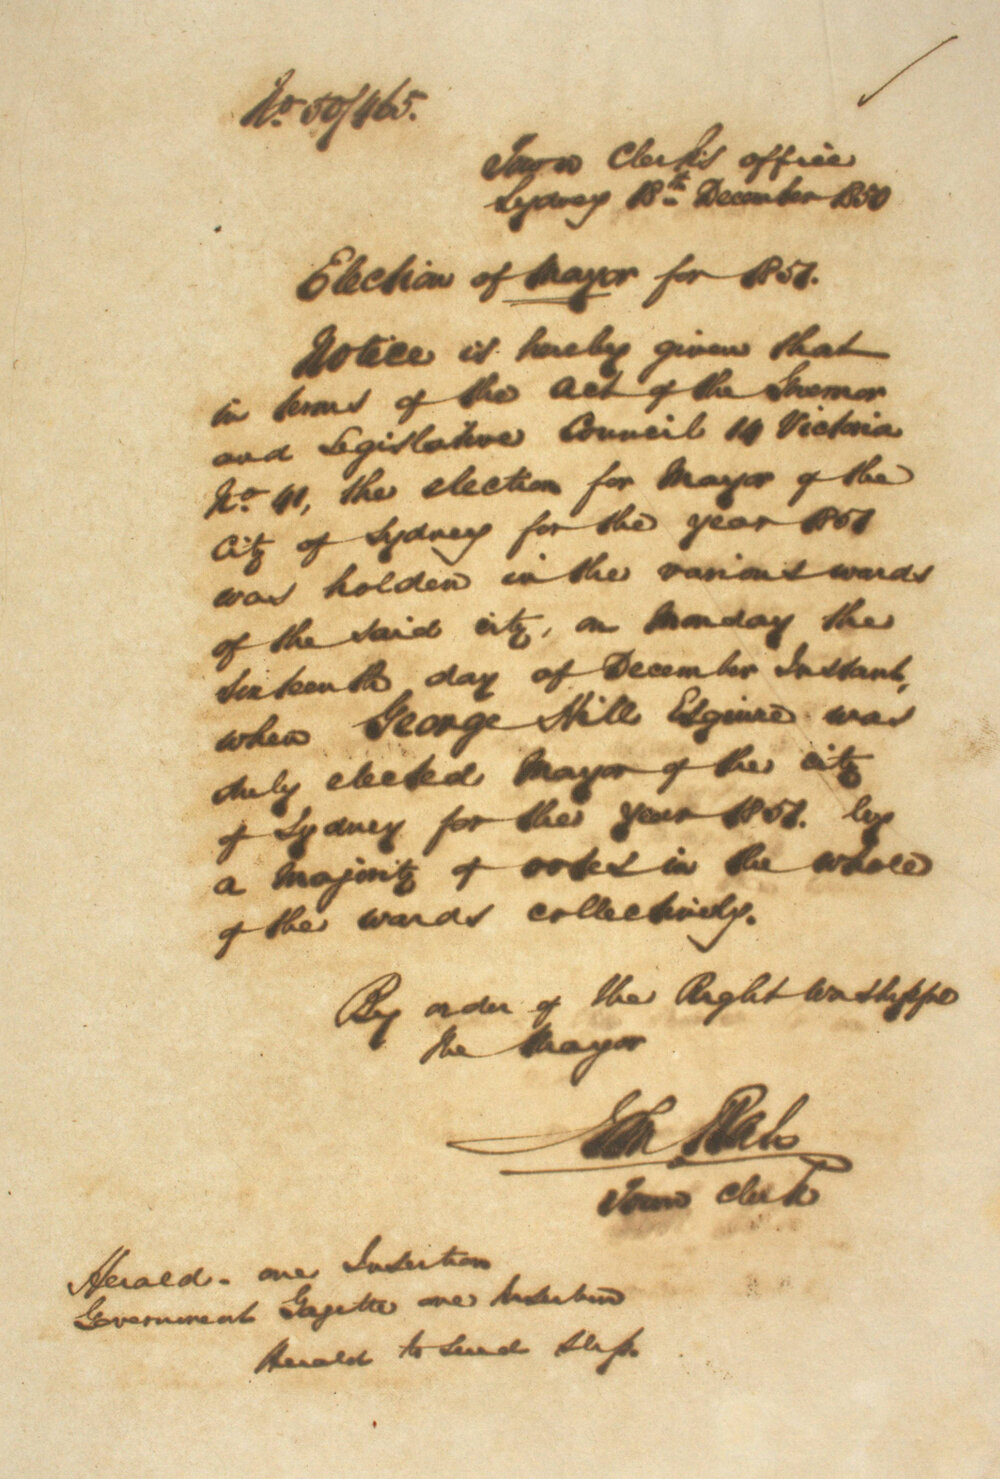 No. 50/465.
Town Clerk's office
Sydney 18th December 1850
Election of Mayor for 1851.
Notice is hereby given that
in terms of the Act of the Governor
and Legislative Council 14 Victoria
No. 41, the election for Mayor of the
City of Sydney for the year 1851
was holden in the various wards
of the said city, on Monday the
sixteenth day of December Instant,
when George Hill Esquire was
duly elected Mayor of the city
of Sydney for the year 1851. by
a majority of votes in the whole
of the wards collectively.
By order of the Right Worshipful
the Mayor
Town Clerk
Herald - one Insertion
Government Gazette one Insertion
Herald to send slip.